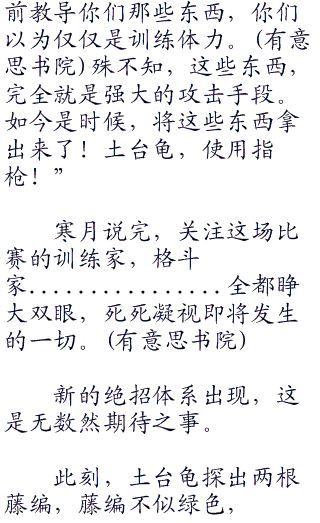 前教导你们那些东西，你们
以为仅仅是训练体力。(有意
思书院)殊不知，这些东西，
完全就是强大的攻击手段。
如今是时候，将这些东西拿
出来了！土台龟，使用指
枪！”
寒月说完，关注这场比
赛的训练家，格斗
家................全都睁
大双眼，死死凝视即将发生
的一切。(有意思书院)
新的绝招体系出现，这
是无数然期待之事。
此刻，土台龟探出两根
藤编，藤编不似绿色，